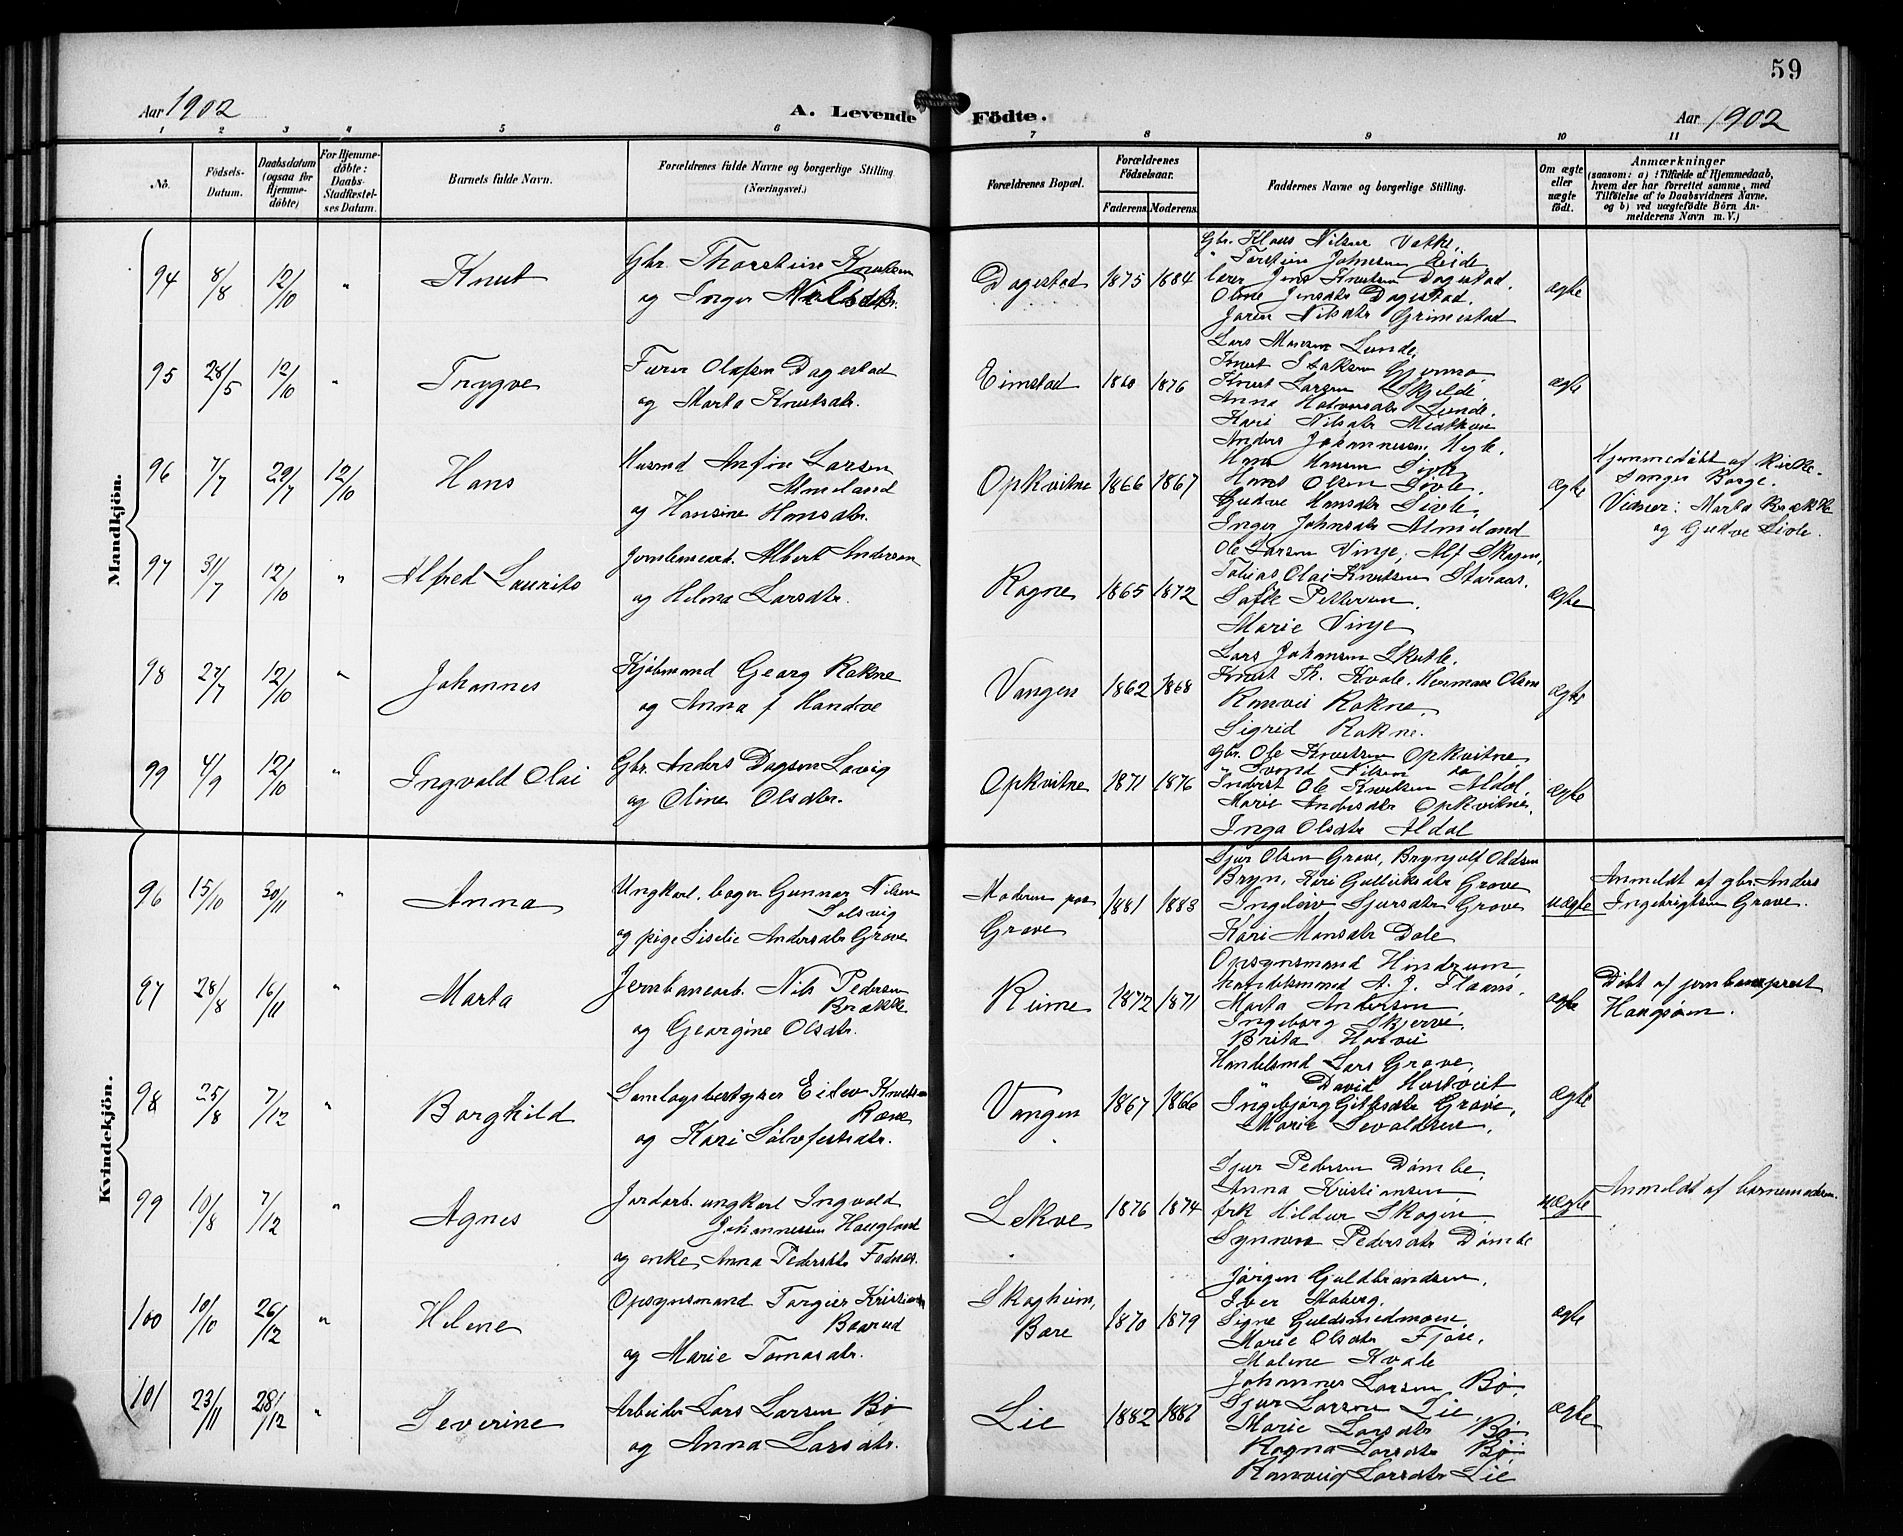 59
Aar 1902
A. Levende Födte.
Aar 1902
1 2 3 4 5 6 7 8 9 10 11
No.
Födsels-Datum.
Daabsdatum (ogsaa for Hjemme-döbte)
For Hjemme-döbte: Daabs-Stadfæstel-ses Datum.
Barnets fulde Navn.
Forældrenes fulde Navne og borgerlige Stilling (Næringsvei.)
Forældrenes Bopæl.
Forældrenes Födselsaar.
Faderens. Moderens.
Faddernes Navne og borgerlige Stilling.
Om ægte eller uægte födt.
Anmærkninger
(saasom: a) i Tilfælde af Hjemmedaab, hvem der har forrettet samme, med Tilföielse af to Daabsvidners Navne, og b) ved uægtefödte Börn Anmelderens Navn m. V.)
Mandkjön.
94 8/8 12/10 " Knut
Gbr. Thorstein Knutsen
og Inger Nilsdtr.
Dagestad 1875 1884
Gbr. Klaus Nilsen
" Torstein Johnsen Eide
lærer Jens Knutsen Dagestad.
Oline Jensdtr Dagestad.
Joren Nilsdtr Grimestad
ægte
95 28/5 12/10 " Trygve
Furer Olafsen Dagestad
og Marta Knutsdtr.
Eimstad 1860 1876
Lars Monsen Lunde,
Knut Isaksen Gjerme,
Knut Larsen Skjelde,
Anna Halvorsdtr Lunde.
Kari Nilsdtr
ægte
96 7/7 29/7 12/10 Hans
Husmd Anfin Larsen
Almeland
og Hansine Hansdtr.
Opkvitne 1866 1867
Anders Johannessen Hegle.
Hans Hansen Sivle
Hans Olsen Sivle,
Gudve Hansdtr Sivle,
Inger Johnsdtr Almeland
ægte
Hjemmedöbt af Kirke-
sanger Borge.
Vidner: Marta Brække
og Gudve Sivle.
97 31/7 12/10 " Alfred Laurits
Jernbanearb. Albert Andersen
og Helma Larsdtr.
Rogne 1865 1872
Ole Larsen Vinje, Alf Skogen,
Tobias Olai Knutsen
Pettersen,
Marie Vinje
ægte
98 27/7 12/10 " Johannes
Kjöbmand Georg Rokne
og Anna f Handve
Vangen 1862 1868
Lars Johansen Skutle.
Knut Th. Kvale. Herman Olsen
Ranvei Rokne,
Sigrid Rokne.
ægte
99 4/9 12/10 " Ingvald Olai
Gbr. Anders Dagsen Lavig
og Oline Olsdtr.
Opkvitne 1871 1876
Gbr. Ole Knutsen Opkvitne
" Svend Nilsen do
Inderst Ole Knutsen Aldal,
Marie Andersdtr Opkvitne,
Inga Olsdtr Aldal
ægte
Kvindekjön.
96 15/10 30/11 " Anna
Ungkarl, bager Gunnar Nilsen
Solsvig
og pige Siselie Andersdtr Grove
Moderen paa
Grove 1881 1883
Sjur Olsen Grove, Brynjulf Oddsen
Bryn, Kari Gulleiksdtr Grove
Ingeleiv Sjursdtr Grove
Kari Monsdtr Dale
uægte
Anmeldt af gbr. Anders
Ingebrigtsen Grove.
97 28/8 16/11 " Marta
Jernbanearb. Nils Pedersen
Brække
og Georgine Olsdtr.
Reime 1872 1871
Opsynsmand Hindrum,
Handelsmand A. J. Flaam,
Marta Andersen,
Ingeborg Skjerve,
Brita
ægte
Döbt af jernbaneprest
Haugsöen.
98 25/8 7/12 " Borghild
Samlagsbestyrer Eilev Knutsen
Rene
og Kari Sölvfestsdtr.
Vangen 1867 1866
Handelsmd Lars Grove,
" David Horsveit
Ingebjørg Grove,
Marie Sevaldsen,
ægte
99 10/8 7/12 " Agnes
Jordarb. ungkarl Ingvald
Johannessen Haugland
og enke Anna Pedersdtr Fodnes.
Lekve 1876 1874
Sjur Pedersen Dömbe,
Anna Kristiansen,
frk Hildur Skogen
Synneva Pedersdtr Dömbe
uægte
Anmeldt af barnemoderen.
100 10/10 26/12 " Helene
Opsynsmand Torgier Kristiansen
Baarud
og Marie Tomasdtr.
Skogheim,
Böre 1870 1879
Jörgen Guldbrandsen,
Iver Moberg,
Signe Guldsmedmoen,
Marie Olsdtr Fjose,
Malene Kvale
ægte
101 23/11 28/12 " Severine
Arbeider Lars Larsen Bö
og Anna Larsdtr.
Lie 1882 1881
Johannes Larsen Bö,
Sjur Larsen Lie,
Marie Larsdtr Bö
Ragna Larsdtr Bö
Ranveig Larsdtr Lie
ægte